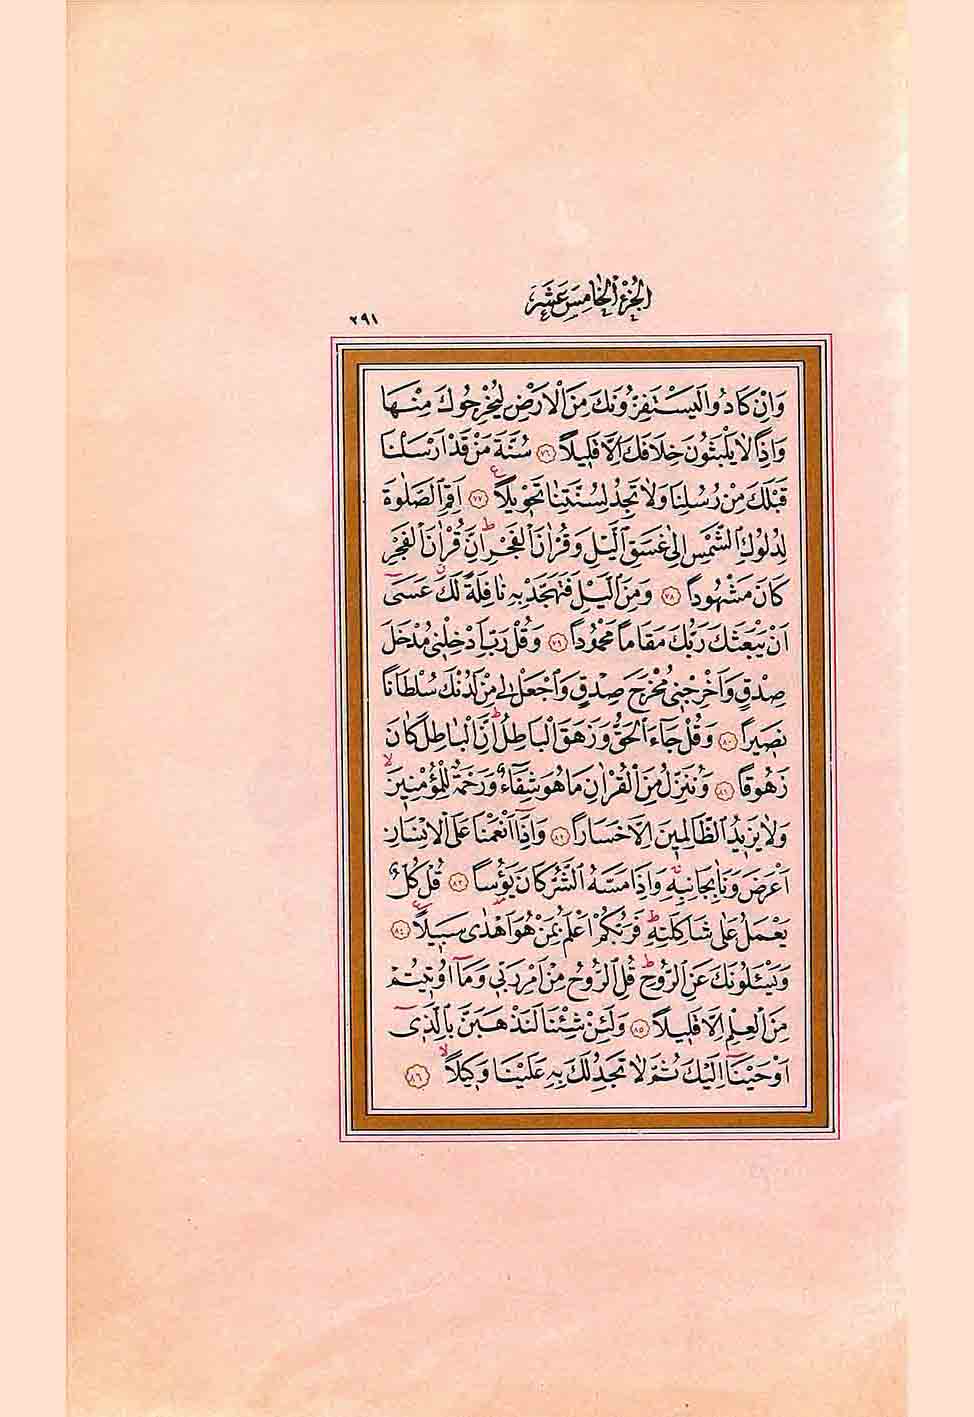 الجزء الخامس عشر
٢٩١
وَاِنْ كَادُوا لَيَسْتَفِزُّونَكَ مِنَ الْاَرْضِ لِيُخْرِجُوكَ مِنْهَا
وَاِذًا لَا يَلْبَثُونَ خِلَافَكَ اِلَّا قَلِيلًا ﴿٧٦﴾ سُنَّةَ مَنْ قَدْ اَرْسَلْنَا
قَبْلَكَ مِنْ رُسُلِنَا وَلَا تَجِدُ لِسُنَّتِنَا تَحْوِيلًا ࣖ ﴿٧٧﴾ اَقِمِ الصَّلٰوةَ
لِدُلُوكِ الشَّمْسِ اِلٰى غَسَقِ الَّيْلِ وَقُرْاٰنَ الْفَجْرِؕ اِنَّ قُرْاٰنَ الْفَجْرِ
كَانَ مَشْهُودًا ﴿٧٨﴾ وَمِنَ الَّيْلِ فَتَهَجَّدْ بِهِ نَافِلَةً لَكَ عَسٰٓى
اَنْ يَبْعَثَكَ رَبُّكَ مَقَامًا مَحْمُودًا ﴿٧٩﴾ وَقُلْ رَبِّ اَدْخِلْنِي مُدْخَلَ
صِدْقٍ وَاَخْرِجْنِي مُخْرَجَ صِدْقٍ وَاجْعَلْ لِي مِنْ لَدُنْكَ سُلْطَانًا
نَصِيرًا ﴿٨٠﴾ وَقُلْ جَاءَ الْحَقُّ وَزَهَقَ الْبَاطِلُؕ اِنَّ الْبَاطِلَ كَانَ
زَهُوقًا ﴿٨١﴾ وَنُنَزِّلُ مِنَ الْقُرْاٰنِ مَا هُوَ شِفَاءٌ وَرَحْمَةٌ لِلْمُؤْمِنِينَۙ
وَلَا يَزِيدُ الظَّالِمِينَ اِلَّا خَسَارًا ﴿٨٢﴾ وَاِذَٓا اَنْعَمْنَا عَلَى الْاِنْسَانِ
اَعْرَضَ وَنَاٰ بِجَانِبِهِۚ وَاِذَا مَسَّهُ الشَّرُّ كَانَ يَؤُسًا ﴿٨٣﴾ قُلْ كُلٌّ
يَعْمَلُ عَلٰى شَاكِلَتِهِؕ فَرَبُّكُمْ اَعْلَمُ بِمَنْ هُوَ اَهْدٰى سَبِيلًا ࣖ ﴿٨٤﴾
وَيَسْـَٔلُونَكَ عَنِ الرُّوحِؕ قُلِ الرُّوحُ مِنْ اَمْرِ رَبِّي وَمَٓا اُوتِيتُمْ
مِنَ الْعِلْمِ اِلَّا قَلِيلًا ﴿٨٥﴾ وَلَئِنْ شِئْنَا لَنَذْهَبَنَّ بِالَّذِٓي
اَوْحَيْنَٓا اِلَيْكَ ثُمَّ لَا تَجِدُ لَكَ بِهِ عَلَيْنَا وَكِيلًاۙ ﴿٨٦﴾